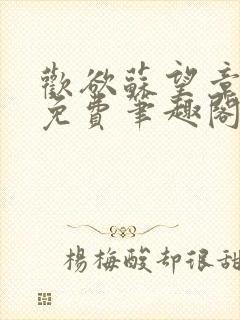 歡欲蘇望意
免費筆趣閣
楊梅酸却很甜